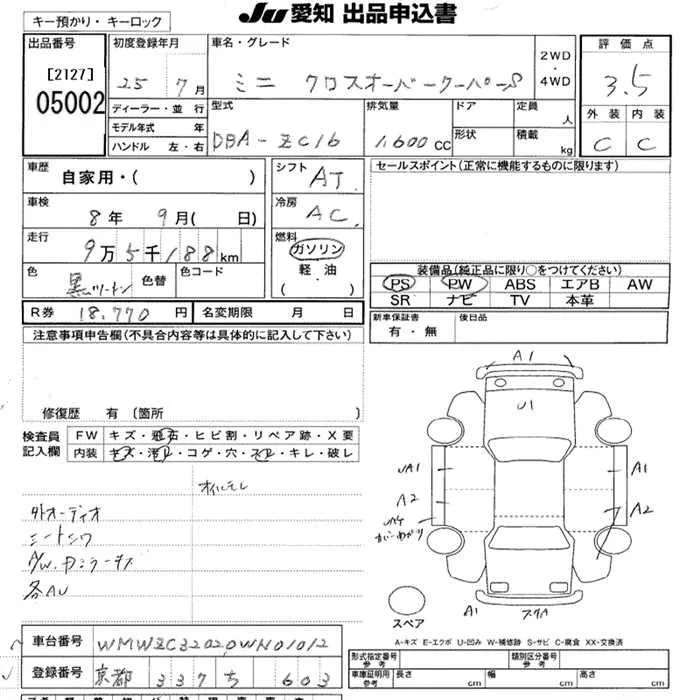 JU 愛知 出品申込書
キー預かり・キーロック
出品番号
[2127]
05002
初度登録年月
25 7月
ディーラー・並 行
モデル年式 年
ハンドル 左・右
車名・グレード
ミニ クロスオーバークーパーS
2WD
・
4WD
型式
DBA-ZC16
排気量
1,600 CC
ドア
形状
定員
人
積載
kg
評 価 点
3.5
外 装 内 装
C C
車歴
自家用・( )
車検
8年 9月( 日)
走行
9万5千188km
色
黒ツートン
色替
色コード
シフト
AT
冷房
AC
燃料
ガソリン
軽 油
( )
セールスポイント(正常に機能するものに限ります)
装備品(純正品に限り○をつけてください)
PS PW ABS エアB AW
SR ナビ TV 本革
R券 18,770円
名変期限 月 日
新車保証書
有 ・ 無
後日品
注意事項申告欄(不具合内容等は具体的に記入して下さい)
修復歴 有 〔箇所 〕
検査員
記入欄
FW キズ・飛石・ヒビ割・リペア跡・X要
内装 キズ・汚れ・コゲ・穴・スレ・キレ・破レ
オイルモレ
外オーディオ
シートシワ
各AU
A1
U1
UA1
A1
A2
A2
A1
スペア
A-キズ E-エクボ U-凹み W-補修跡 S-サビ C-腐食 XX-交換済
車台番号 WMWZC32020WH01012
登録番号 京都 337 ち 603
形式指定番号
参 考
類別区分番号
参 考
車庫証明用
参 考
長さ cm
幅 cm
高さ cm